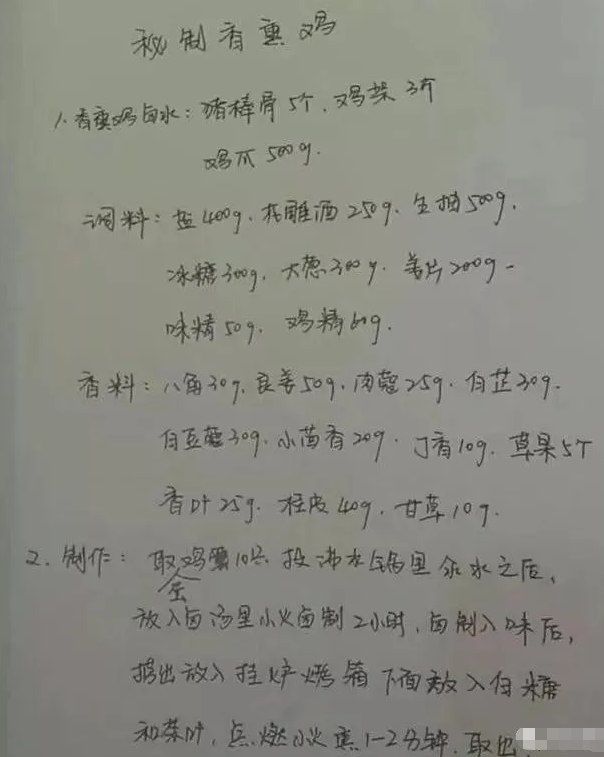 秘制香熏鸡
1. 香熏鸡卤水：猪棒骨5个、鸡架3斤
鸡爪500g.
调料：盐400g、花雕酒250g、生抽500g、
冰糖300g、大葱300g、姜片200g、
味精50g、鸡精60g.
香料：八角30g、良姜50g、肉蔻25g、白芷30g、
白豆蔻30g、小茴香20g、丁香10g、草果5个
香叶25g、桂皮40g、甘草10g.
2. 制作：取鸡10只 投沸水锅里汆水之后，
全
放入卤汤里小火卤制2小时，卤制入味后，
捞出放入挂炉烤箱下面放入白糖
和茶叶，点燃小火熏1-2分钟，取出